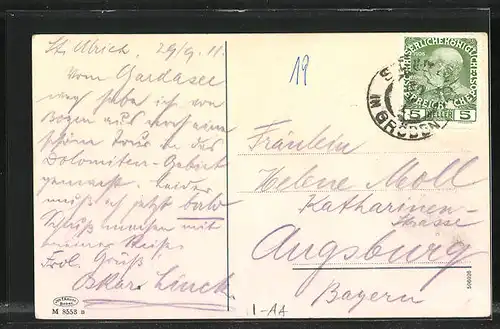 St. Ulrich, 29/9. 11.
Vom Gardasee
weg habe ich von
Bozen aus noch eine
schöne Tour in das
Dolomiten-Gebiet
gemacht. Leider
muß ich jetzt bald
Schluß machen mit
meiner Reise.
Frdl. Gruß!
Oskar Linck
M 8553 B
19
IN GRÖDEN
5 HELLER 5
Fräulein
Helene Moll
Katharinen-
strasse
Augsburg
Bayern
I-AA